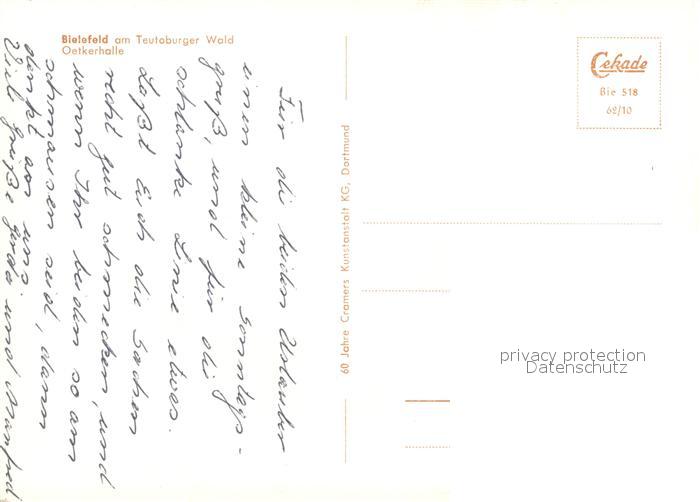 Bielefeld am Teutoburger Wald
Oetkerhalle
Für die beiden Urlauber
einen kleine Sonntags-
gruß, und für die
schlanke Linie etwas.
Laßt Euch die Sachen
recht gut schmecken, und
wenn Ihr beiden so am
schmausen seid, dann
denkt an uns.
Viele Grüße Gerda und Manfred
60 Jahre Cramers Kunstanstalt KG, Dortmund
Cekade
Bie 518
62/10
privacy protection
Datenschutz